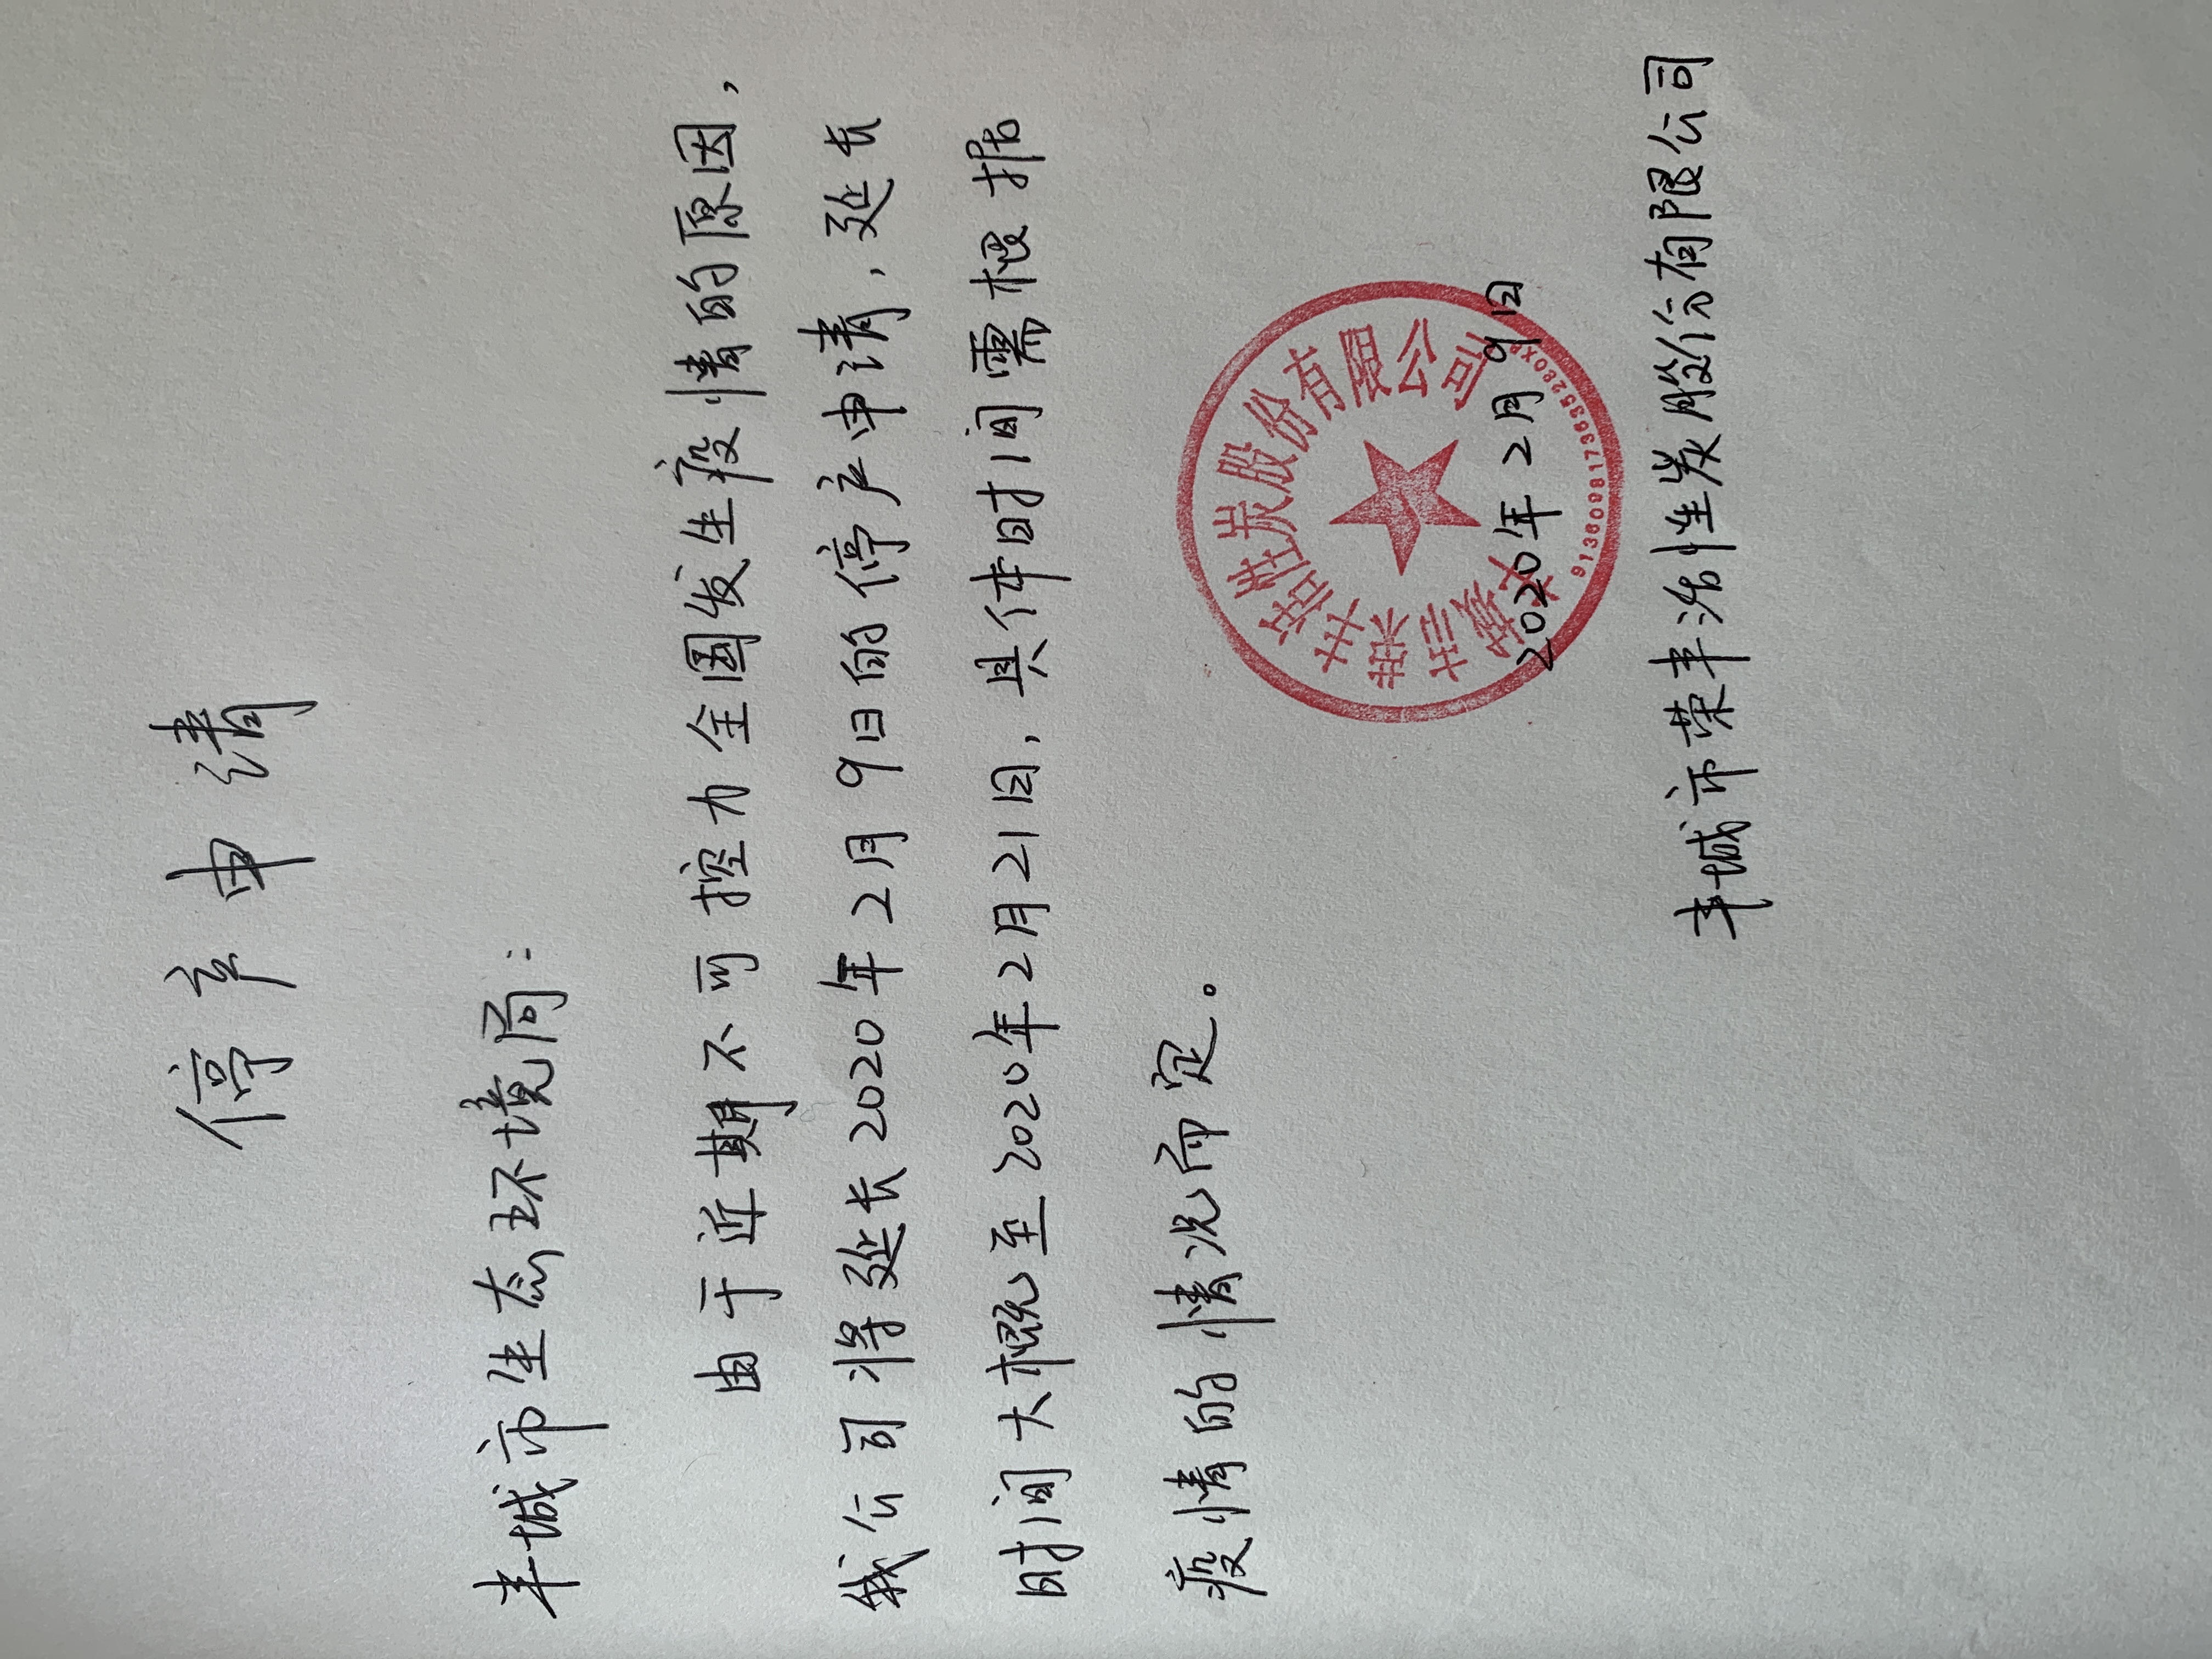 停产申请
丰城市生态环境局:
由于近期不可控力全国发生疫情的原因,
我公司将延长2020年2月9日的停产申请,延长
时间大概至2020年2月21日,具体时间需根据
疫情的情况而定。
2020年2月9日
丰城市荣丰活性炭股份有限公司
丰城市荣丰活性炭股份有限公司